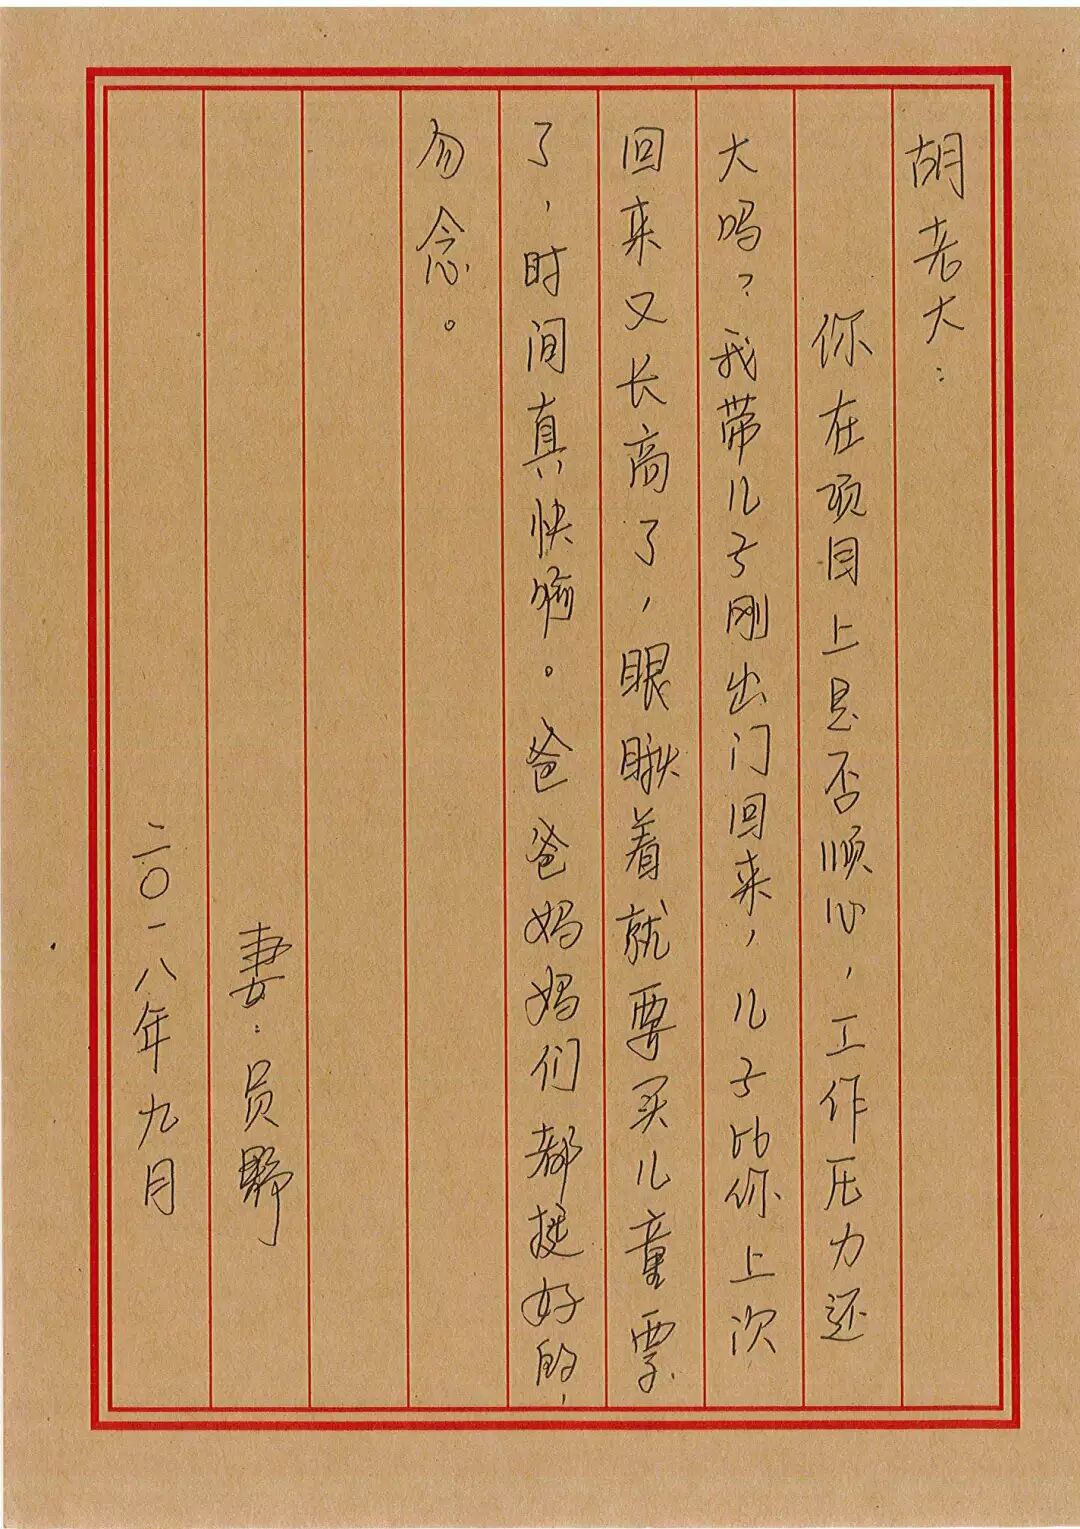 胡老大：
你在项目上是否顺心，工作压力还
大吗？我带儿子刚出门回来，儿子比你上次
回来又长高了，眼瞅着就要买儿童票
了，时间真快啊。爸爸妈妈们都挺好的，
勿念。
妻：员野
二〇一八年九月